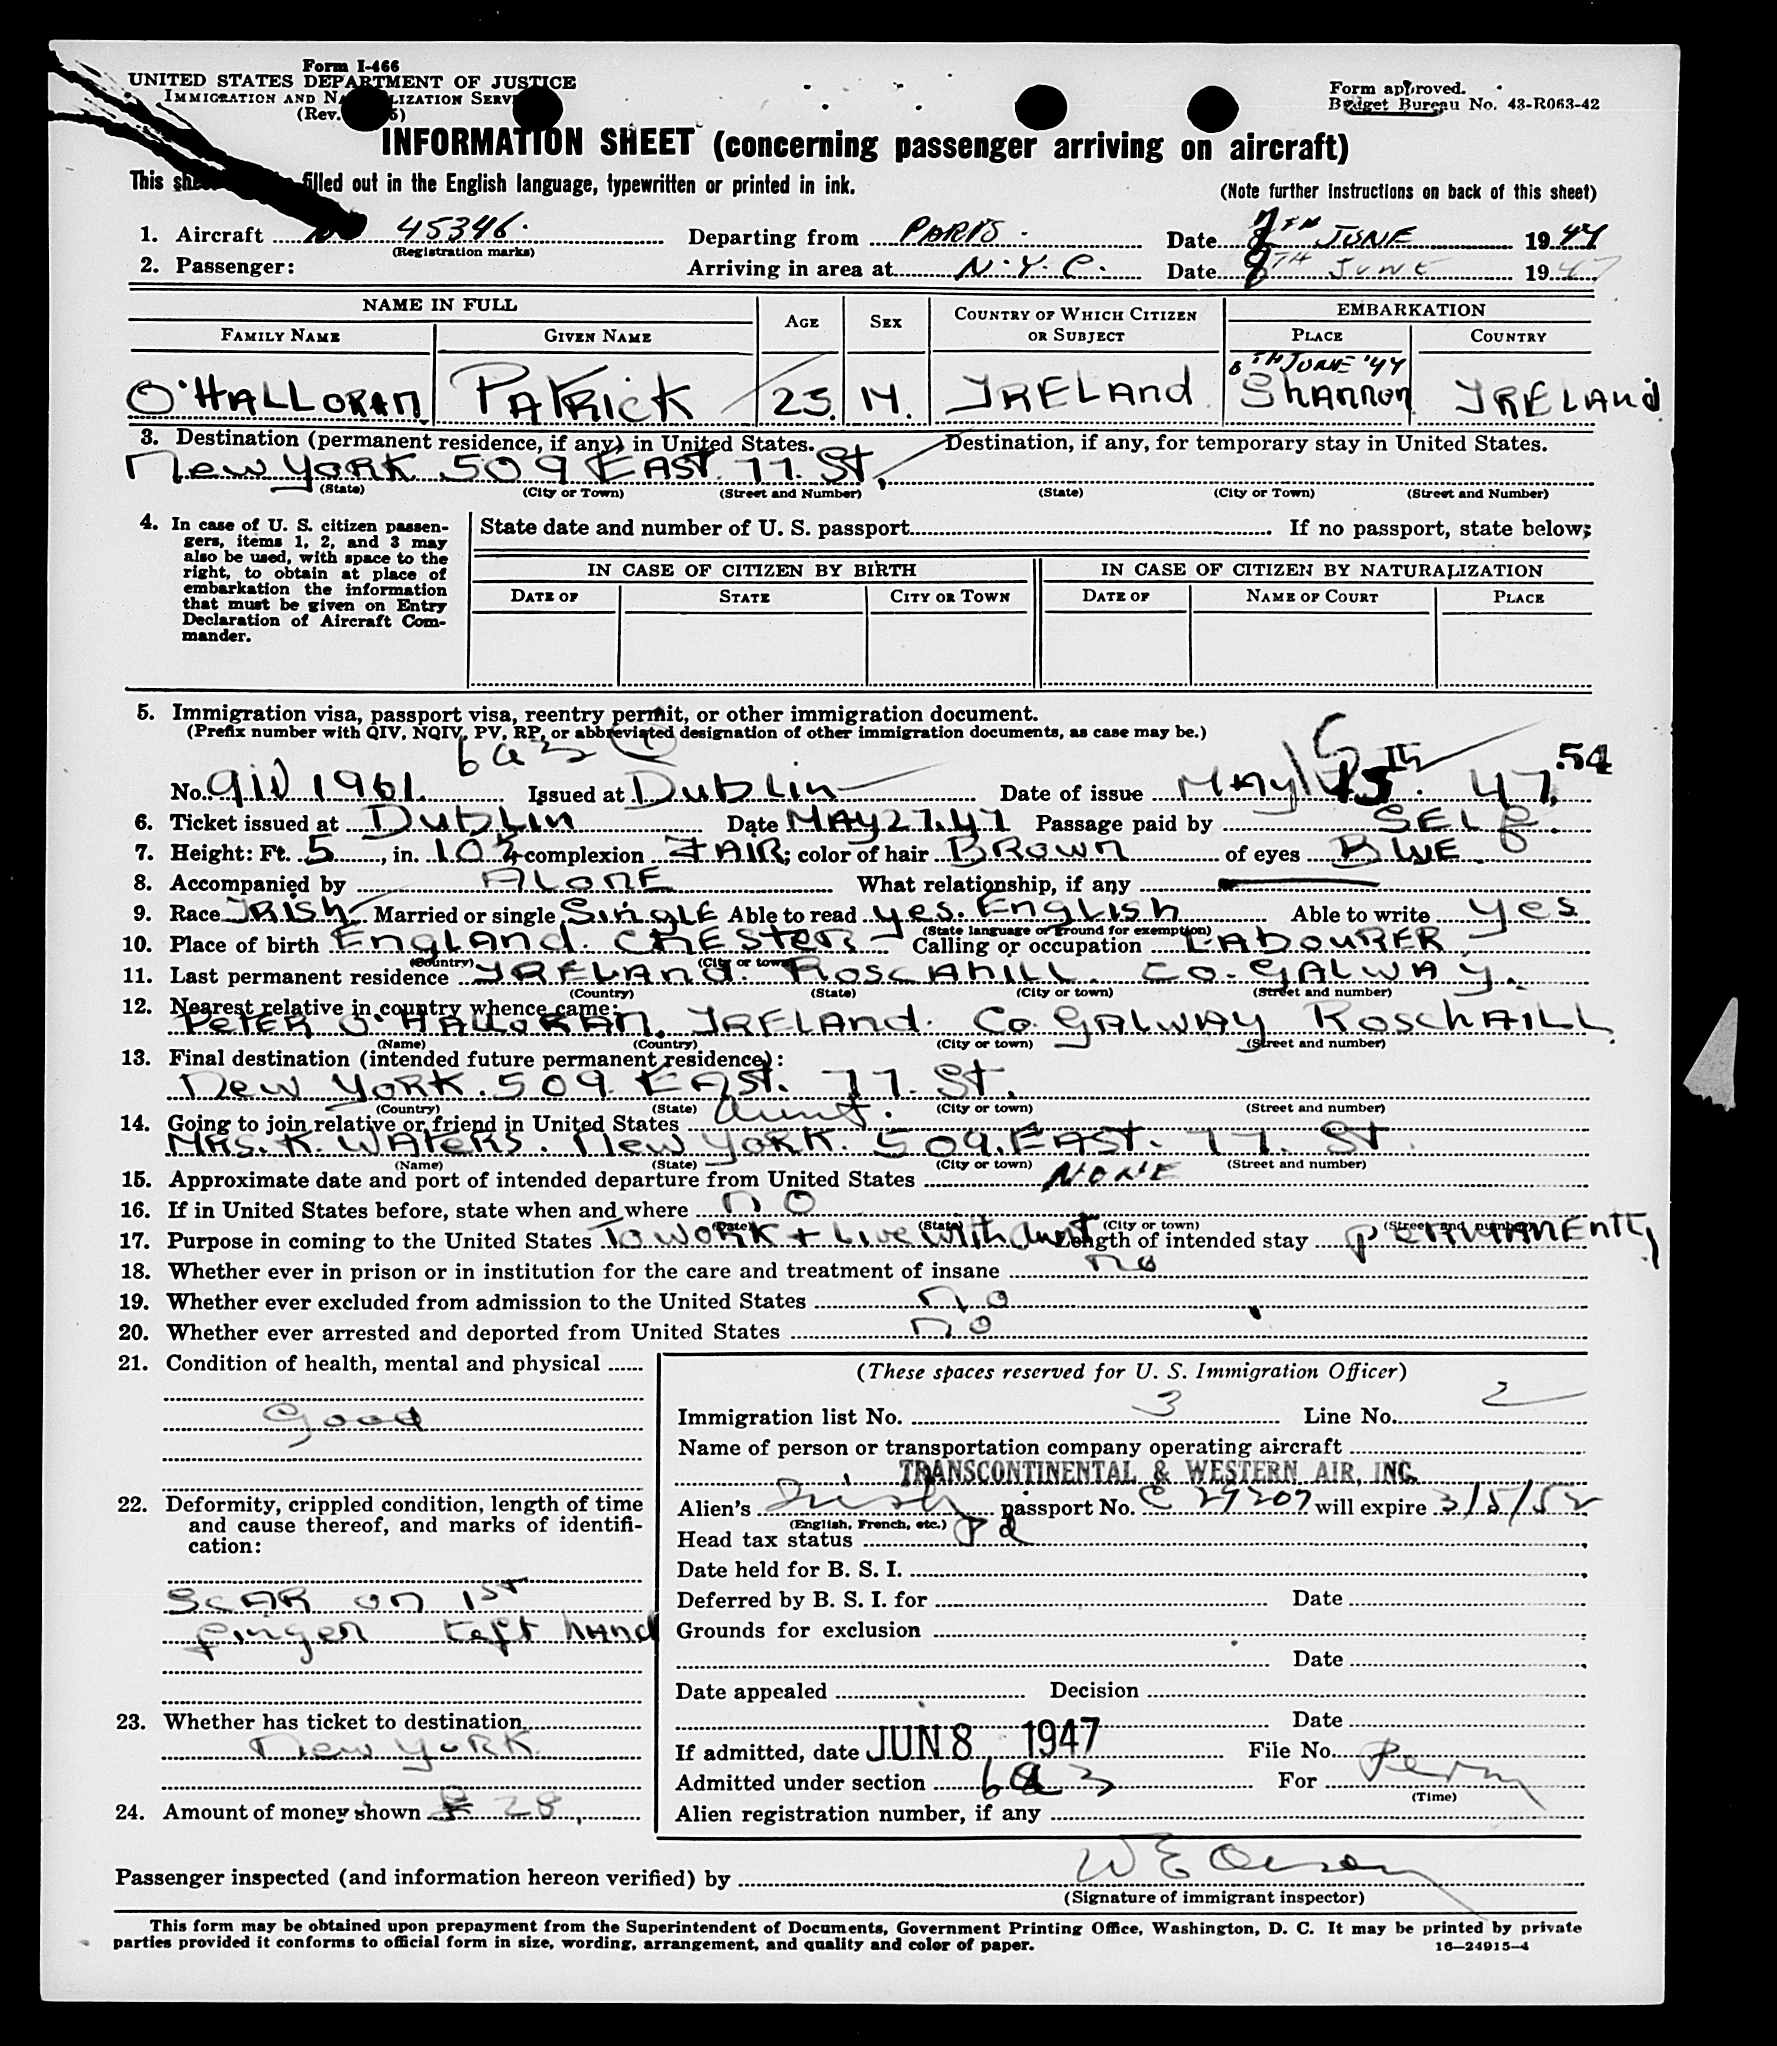 Form I-466
UNITED STATES DEPARTMENT OF JUSTICE
IMMIGRATION AND NATURALIZATION SERVICE
(Rev.
Form approved.
Budget Bureau No. 43-R063-42
INFORMATION SHEET (concerning passenger arriving on aircraft)
This sheet filled out in the English language, typewritten or printed in ink.
(Note further instructions on back of this sheet)
1. Aircraft 45346. Departing from PARIS. Date 7TH JUNE 1947
(Registration marks)
2. Passenger: Arriving in area at N.Y.C. Date 8TH JUNE 1947
NAME IN FULL AGE SEX COUNTRY OF WHICH CITIZEN OR SUBJECT EMBARKATION
FAMILY NAME GIVEN NAME PLACE COUNTRY
8TH JUNE '47
O'HALLORAN PATRICK 25. M. IRELAND SHANNON IRELAND
3. Destination (permanent residence, if any) in United States. Destination, if any, for temporary stay in United States.
New YORK 509 EAST. 77. St.
(State) (City or Town) (Street and Number) (State) (City or Town) (Street and Number)
4. In case of U. S. citizen passengers, items 1, 2, and 3 may also be used, with space to the right, to obtain at place of embarkation the information that must be given on Entry Declaration of Aircraft Commander.
State date and number of U. S. passport If no passport, state below:
IN CASE OF CITIZEN BY BIRTH IN CASE OF CITIZEN BY NATURALIZATION
DATE OF STATE CITY OR TOWN DATE OF NAME OF COURT PLACE
5. Immigration visa, passport visa, reentry permit, or other immigration document.
(Prefix number with QIV, NQIV, PV, RP, or abbreviated designation of other immigration documents, as case may be.)
6a3
54
No. QIV 1961. Issued at DUBLIN Date of issue MAY 15th. 47.
6. Ticket issued at DUBLIN Date MAY 27.47 Passage paid by SELF.
7. Height: Ft. 5, in. 10½ complexion FAIR; color of hair BROWN of eyes BLUE
8. Accompanied by ALONE What relationship, if any
9. Race IRISH Married or single SINGLE Able to read yes. English Able to write yes
(State language or ground for exemption)
10. Place of birth ENGLAND. CHESTER Calling or occupation LABOURER
(Country) (City or town)
11. Last permanent residence IRELAND. ROSCAHILL. CO. GALWAY.
(Country) (State) (City or town) (Street and number)
12. Nearest relative in country whence came:
PETER O'HALLORAN, IRELAND. CO. GALWAY ROSCHAILL.
(Name) (Country) (City or town) (Street and number)
13. Final destination (intended future permanent residence):
New YORK. 509 EAST. 77. St.
(Country) (State) (City or town) (Street and number)
14. Going to join relative or friend in United States Aunt.
MRS. K. WATERS. New YORK. 509. EAST. 77. St.
(Name) (State) (City or town) (Street and number)
15. Approximate date and port of intended departure from United States NONE
16. If in United States before, state when and where no
(Date) (State) (City or town) (Street and number)
17. Purpose in coming to the United States To WORK + Live With Aunt Length of intended stay PERMANENTLY
18. Whether ever in prison or in institution for the care and treatment of insane no
19. Whether ever excluded from admission to the United States no
20. Whether ever arrested and deported from United States no
21. Condition of health, mental and physical
Good
22. Deformity, crippled condition, length of time and cause thereof, and marks of identification:
SCAR on 1ST
finger left hand
23. Whether has ticket to destination
New YORK
24. Amount of money shown 28
(These spaces reserved for U. S. Immigration Officer)
Immigration list No. 3 Line No. 2
Name of person or transportation company operating aircraft
TRANSCONTINENTAL & WESTERN AIR, INC.
Alien's Irish passport No. C 29207 will expire 3/5/52
(English, French, etc.)
Head tax status Pd
Date held for B. S. I.
Deferred by B. S. I. for Date
Grounds for exclusion
Date
Date appealed Decision
Date
If admitted, date JUN 8 1947 File No.
Admitted under section 6a3 For Perm
(Time)
Alien registration number, if any
Passenger inspected (and information hereon verified) by
(Signature of immigrant inspector)
This form may be obtained upon prepayment from the Superintendent of Documents, Government Printing Office, Washington, D. C. It may be printed by private
parties provided it conforms to official form in size, wording, arrangement, and quality and color of paper. 16—24915-4